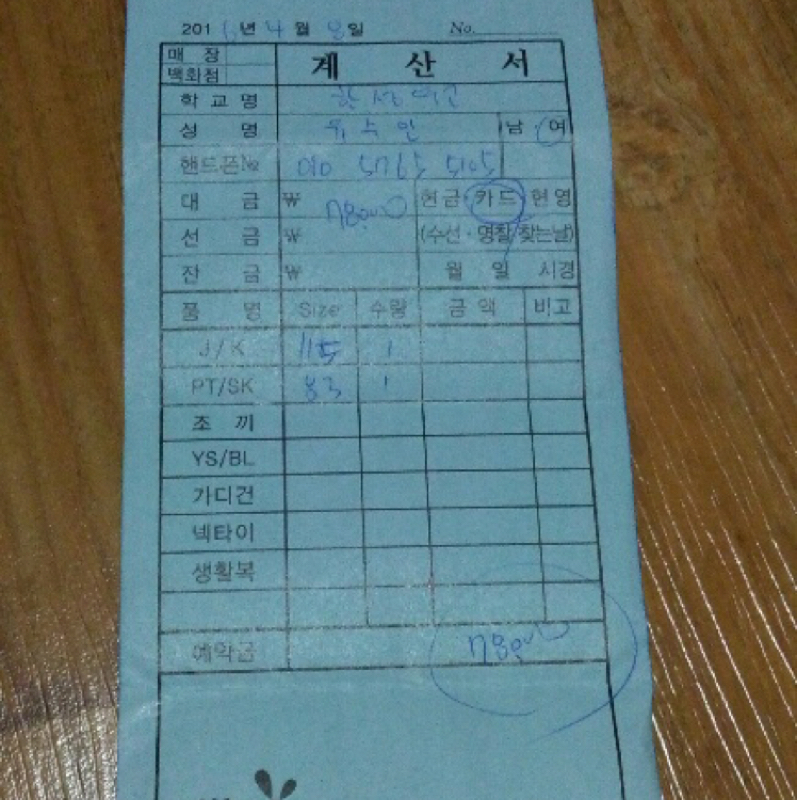 2016년 4월 8일 No.
매장
백화점
계산서
학교명 한성여고
성명 유수인 남 여
핸드폰№ 010 5765 5105
대금 ₩ 78000 현금·카드·현영
선금 ₩ (수선·명찰/찾는날)
잔금 ₩ 월 일 시경
품명 Size 수량 금액 비고
J/K 115 1
PT/SK 83 1
조끼
YS/BL
가디건
넥타이
생활복
예약금 78000